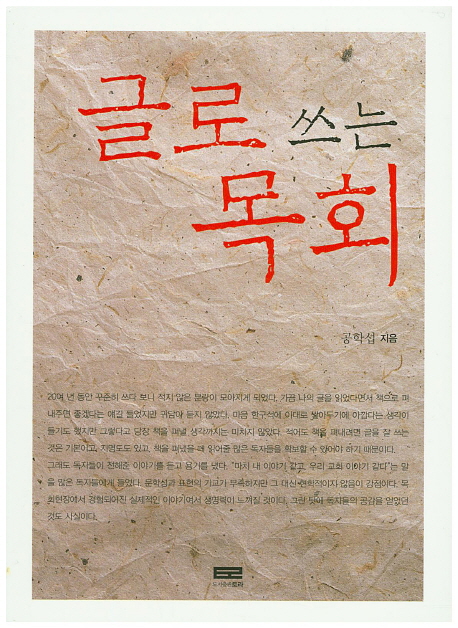 글로 쓰는
목회
공학섭 지음
20여 년 동안 꾸준히 쓰다 보니 적지 않은 분량이 모아지게 되었다. 가끔 나의 글을 읽었다면서 책으로 펴
내주면 좋겠다는 얘길 들었지만 귀담아 듣지 않았다. 마음 한구석에 이대로 쌓아두기에 아깝다는 생각이
들기도 했지만 그렇다고 당장 책을 펴낼 생각까지는 미치지 않았다. 적어도 책을 펴내려면 글을 잘 쓰는
것은 기본이고, 지명도도 있고, 책을 펴냈을 때 읽어줄 많은 독자들을 확보할 수 있어야 하기 때문이다.
그래도 독자들이 전해준 이야기를 듣고 용기를 냈다. "마치 내 이야기 같고, 우리 교회 이야기 같다"는 말
을 많은 독자들에게 들었다. 문학성과 표현의 기교가 부족하지만 그 대신 현학적이지 않음이 강점이다. 목
회현장에서 경험되어진 실제적인 이야기여서 생명력이 느껴질 것이다. 그런 탓에 독자들의 공감을 얻었던
것도 사실이다.
도서출판토라